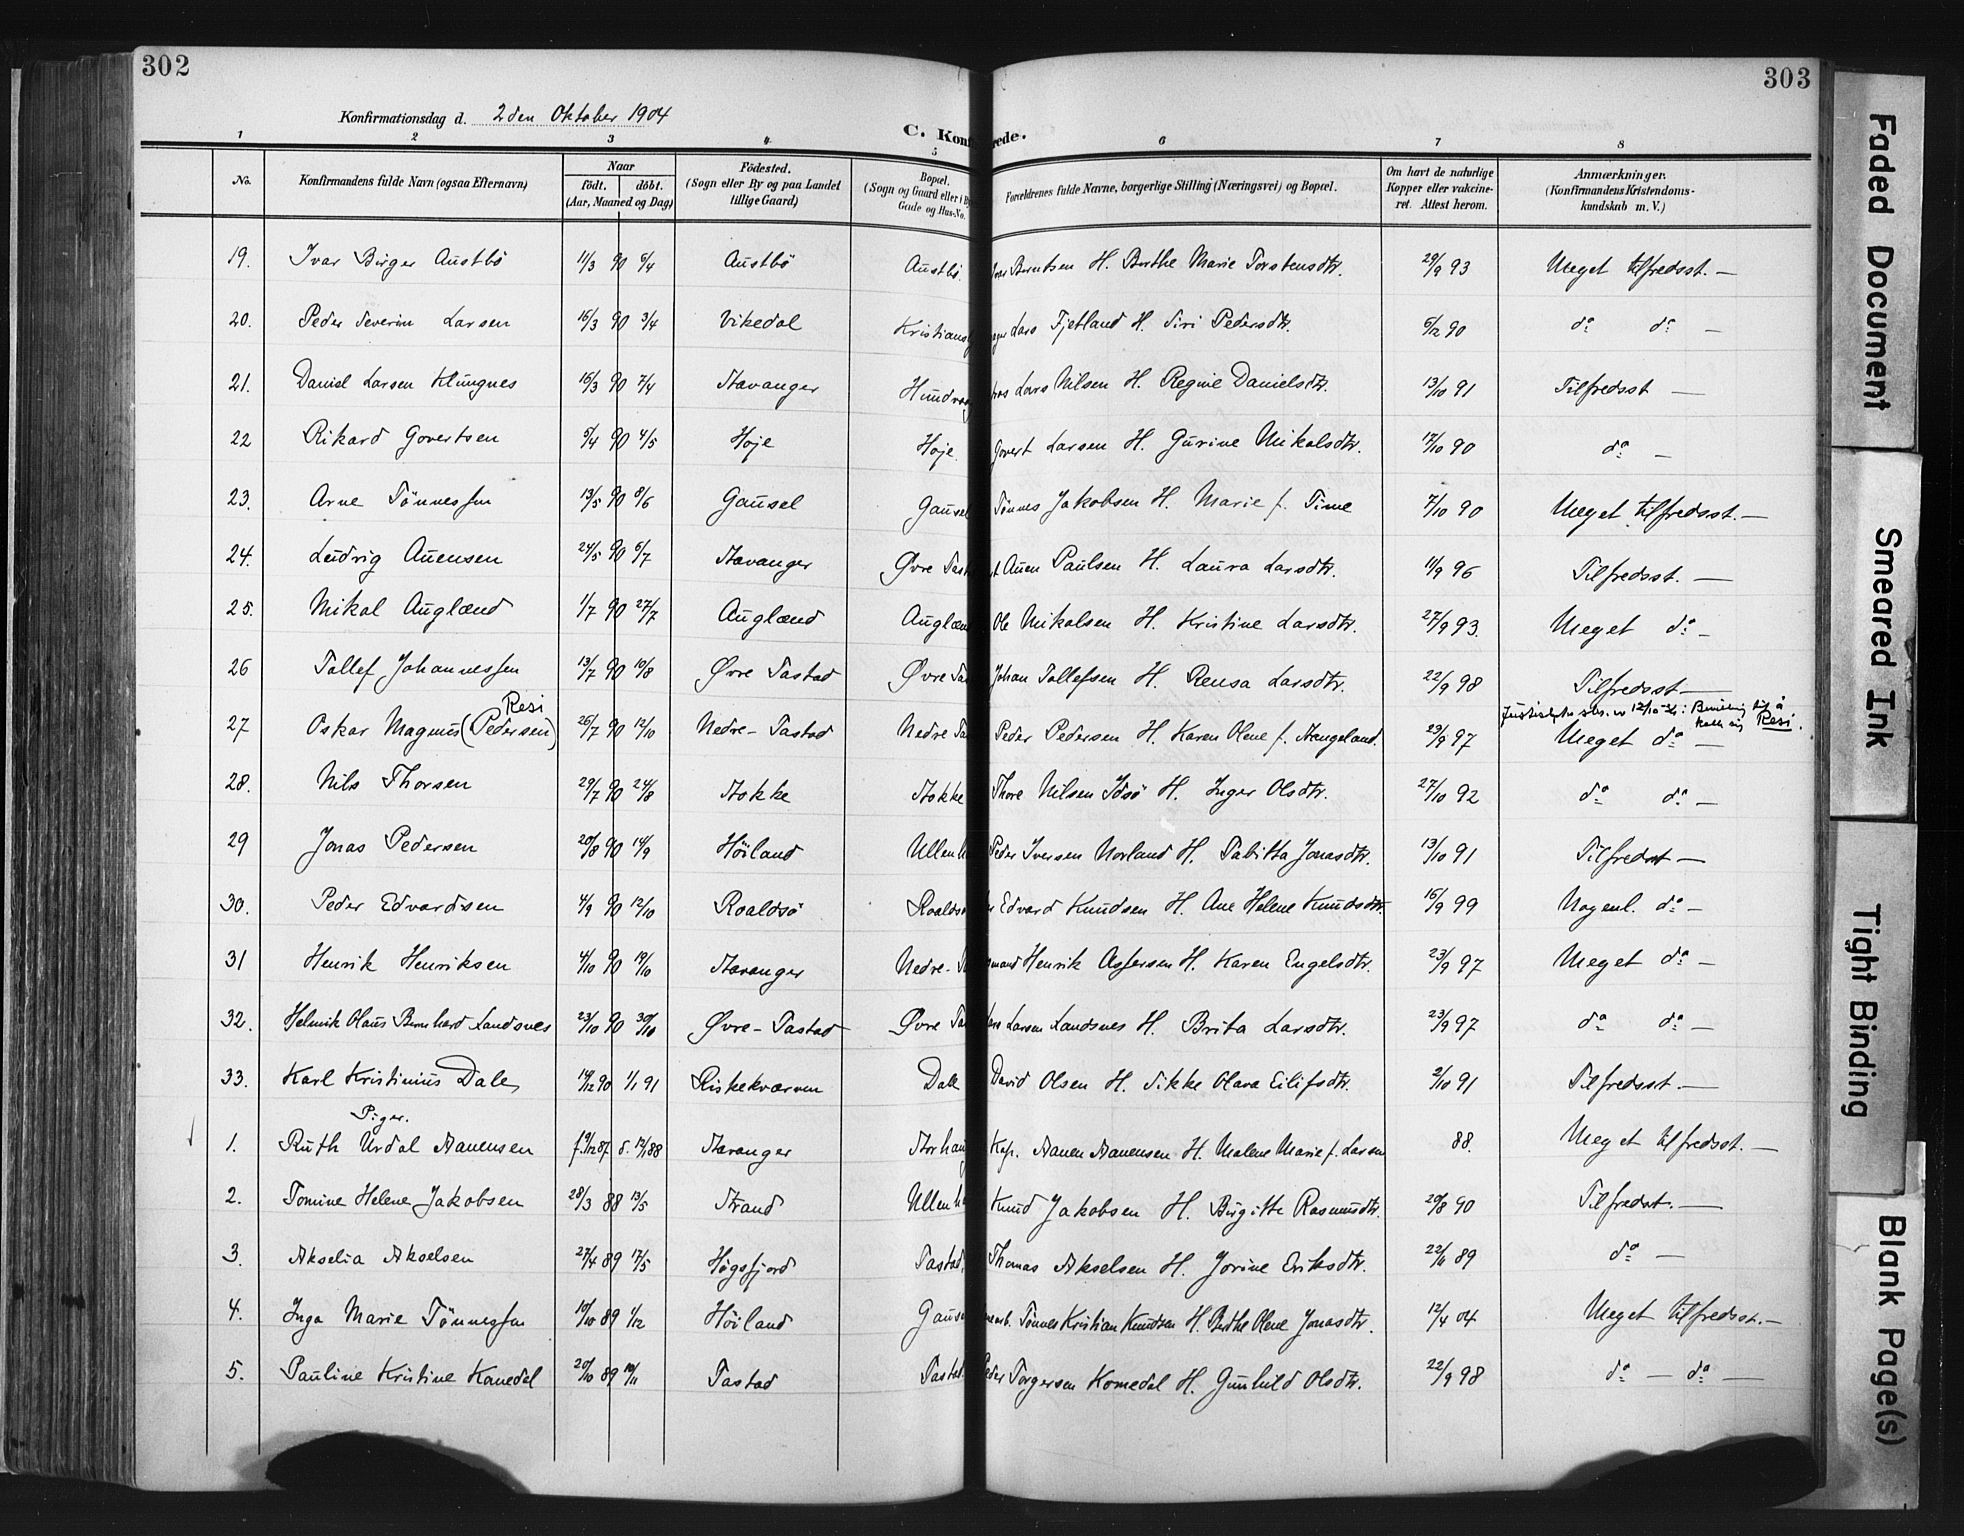 302
303
Konfirmationsdag d. 2den Oktober 1904
C. Konf rede.
1 2 3 4 5 6 7 8
No. Konfirmandens fulde Navn (ogsaa Efternavn) Naar født. døbt. (Aar, Maaned og Dag) Födested. (Sogn eller By og paa Landet tillige Gaard) Bopæl. (Sogn og Gaard eller i By Gade og Hus-No. Forældrenes fulde Navne, borgerlige Stilling (Næringsvei) og Bopæl. Om havt de naturlige Kopper eller vakcineret. Attest herom. Anmærkninger. (Konfirmandens Kristendomskundskab m. V.)
19. Ivar Birger Austbö 11/3 90 6/4 Austbö Austbö Berntsen H. Berthe Marie Torstensdtr. 29/9 93 Meget tilfredsst. —
20. Peder Severin Larsen 16/3 90 3/4 Vikedal Kristians Lars Fjetland H. Siri Pedersdtr. 6/12 90 do do —
21. Daniel Larsen Klungnes 16/3 90 7/4 Stavanger Hundvaag Lars Nilsen H. Regine Danielsdtr. 13/10 91 Tilfredsst —
22 Rikard Govertsen 5/4 90 4/5 Høje Høje. Govert Larsen H. Gurine Mikalsdtr. 17/10 90 do —
23. Arne Tönnessen 13/5 90 8/6 Gausel Gausel Tönnes Jakobsen H. Marie f. Time 7/10 90 Meget tilfredsst. —
24. Ludvig Auensen 24/5 90 6/7 Stavanger Øvre Tast Auen Paulsen H. Laura Larsdtr. 11/9 96 Tilfredsst. —
25. Mikal Auglænd 1/7 90 27/7 Auglænd Auglænd Ole Mikalsen H. Kristine Larsdtr. 27/9 93. Meget do —
26 Tollef Johannessen 13/7 90 10/8 Øvre Tastad Øvre Tas Johan Tollefsen H. Rensa Larsdtr. 22/9 98 Tilfredsst —
27 Oskar Magnus (Pedersen) Resi 26/7 90 12/10 Nedre-Tastad Nedre Tas Peder Pedersen H. Karen Olene f. Stangeland. 23/9 97 Resi. Meget do —
28. Nils Thorsen 29/7 90 24/8 Stokke Stokke Thore Nilsen Idsö H. Inger Olsdtr. 27/10 92 do do —
29 Jonas Pedersen 20/8 90 14/9 Höiland Ullenha Peder Iversen Norland H. Tabitta Jonasdtr. 13/10 91 Tilfredsst —
30. Peder Edvardsen 4/9 90 12/10 Roaldsö Roaldsö Edvard Knudsen H. Ane Helene Knudsdtr. 16/9 99 Nogenl. do —
31 Henrik Henriksen 4/10 90 19/10 Stavanger Nedre-T Henrik Assersen H. Karen Engelsdtr. 23/9 97 Meget do —
32. Helmik Olaus Bernhard Landsnes 23/10 90 30/10 Øvre-Tastad Øvre Tas Lars Larsen Landsnes H. Brita Larsdtr. 23/9 97 do do —
33. Karl Kristinius Dale 14/12 90 1/1 91 Riskekværven Dale David Olsen H. Sikke Olava Eilifsdtr. 2/10 91 Tilfredsst. —
Piger.
1. Ruth Urdal Aanensen f. 9/12 87 d. 12/1 88 Stavanger Storhaug Kap. Aanen Aanensen H. Malene Marie f. Larsen 88. Meget tilfredsst. —
2. Tomine Helene Jakobsen 28/3 88 13/5 Strand Ullenha Knud Jakobsen H. Birgitte Rasmusdtr. 20/8 90 Tilfredsst. —
3. Akselia Akselsen 27/4 89 17/5 Høgsfjord Tastad, Thomas Akselsen H. Jorine Eriksdtr. 22/11 89 do —
4. Inga Marie Tönnessen 10/10 89 1/12 Höiland Gausel Tönnes Kristian Knudsen H. Berthe Olene Jonasdtr. 12/4 04 Meget tilfredsst. —
5. Pauline Kristine Komedal 20/10 89 10/11 Tastad Tastad. Peder Torgersen Komedal H. Gunhild Olsdtr. 22/9 98 do — do —
Faded Document
Smeared Ink
Tight Binding
Blank Page(s)